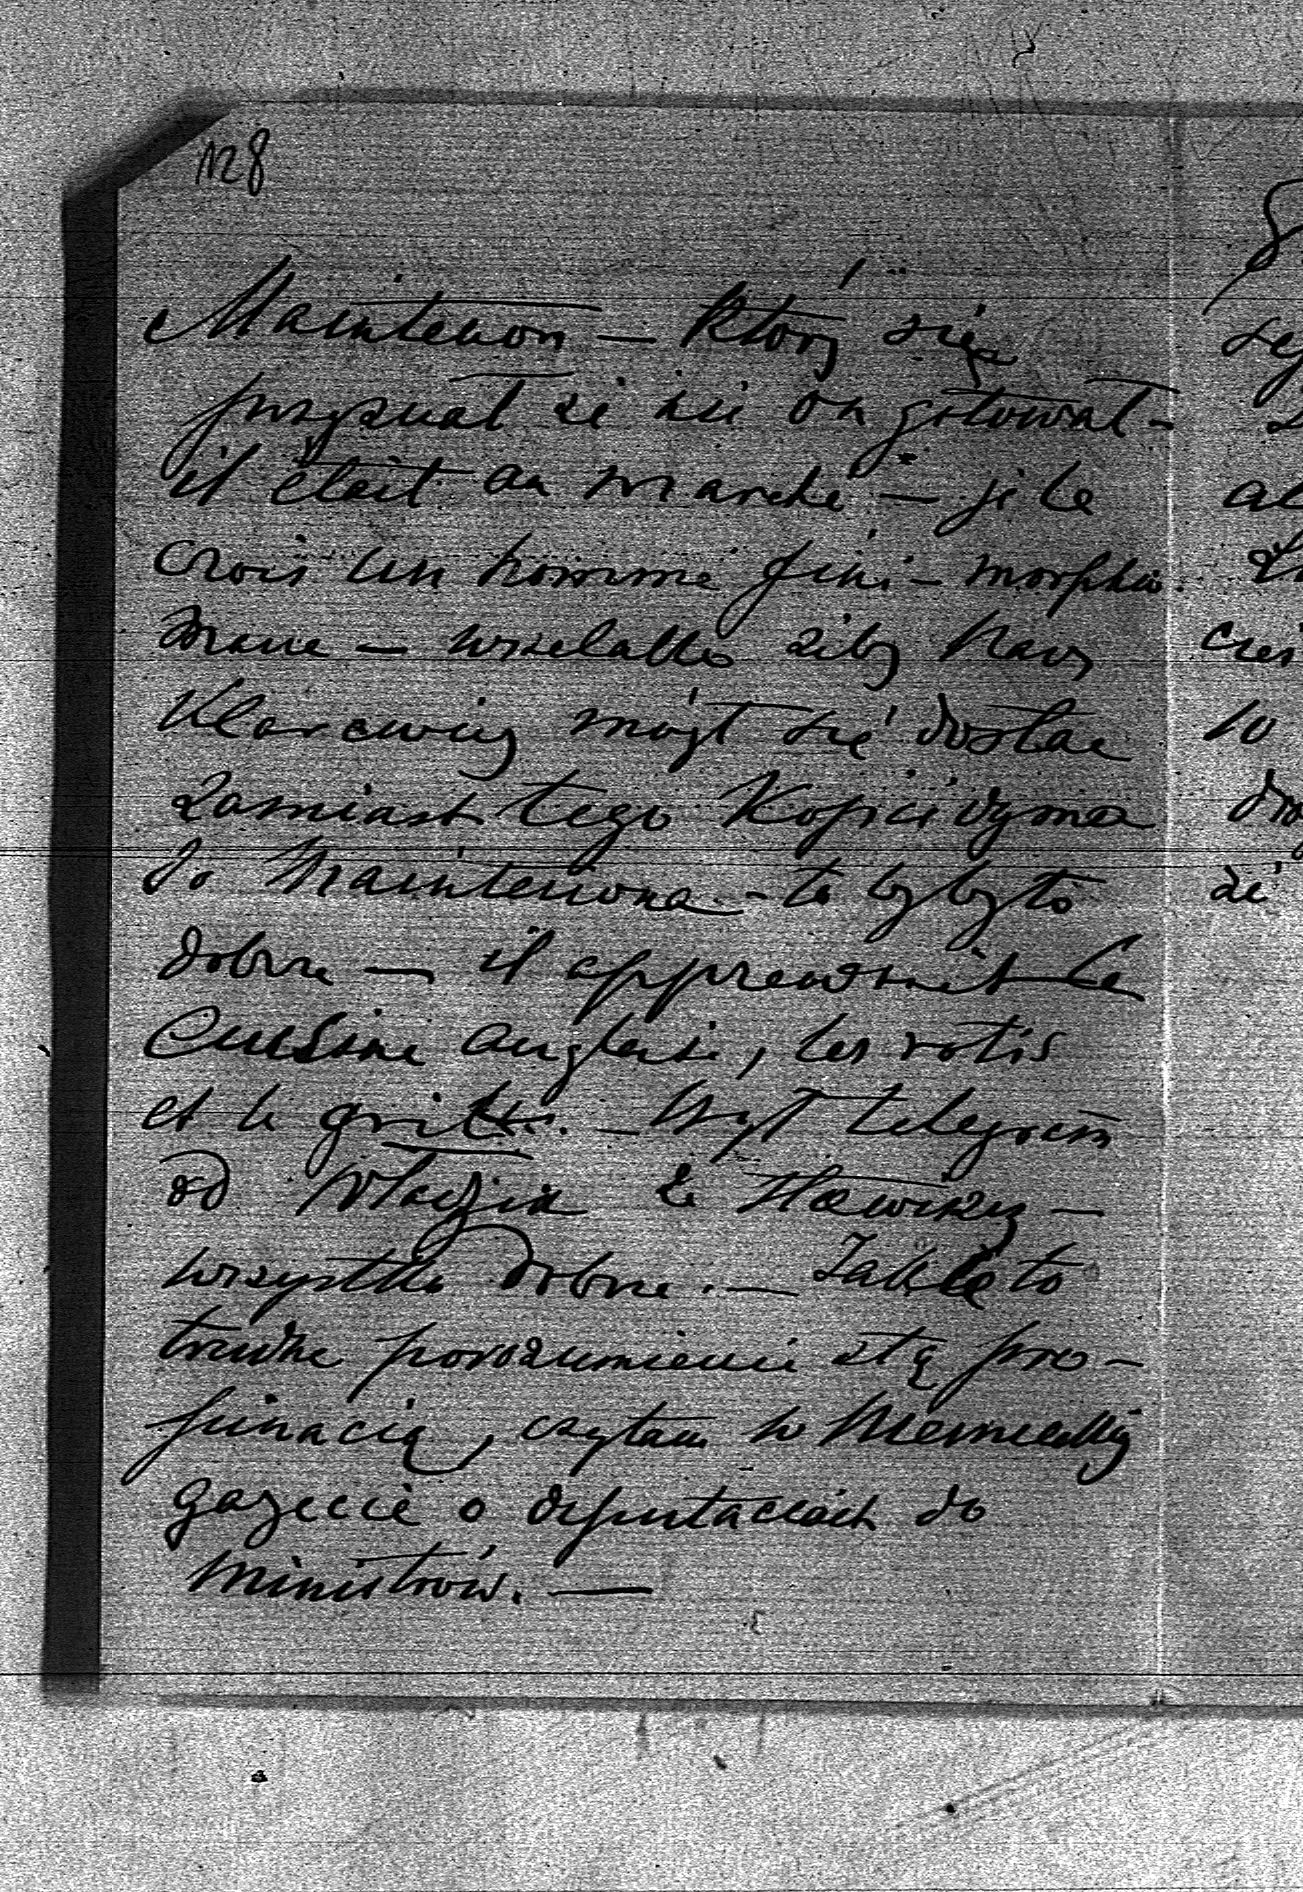 128
Maintenon — który się
przyznał że nie on gotował -
il était au marché — je le
crois un homme fini - morphio-
mane — wszelako żeby
mógł się dostać
zamiast tego Kopcidyma
do Maintenona - to byłoby to
dobrze — il apprendrait la
Cuisine anglaise, les rotis
et le — był telegram
od Władzia z Hawiny —
wszystko dobrze. — Jakże to
trudne porozumienie z tą pro-
pinacią, czytam w Niemieckiej
gazecie o deputaciach do
ministrów. —